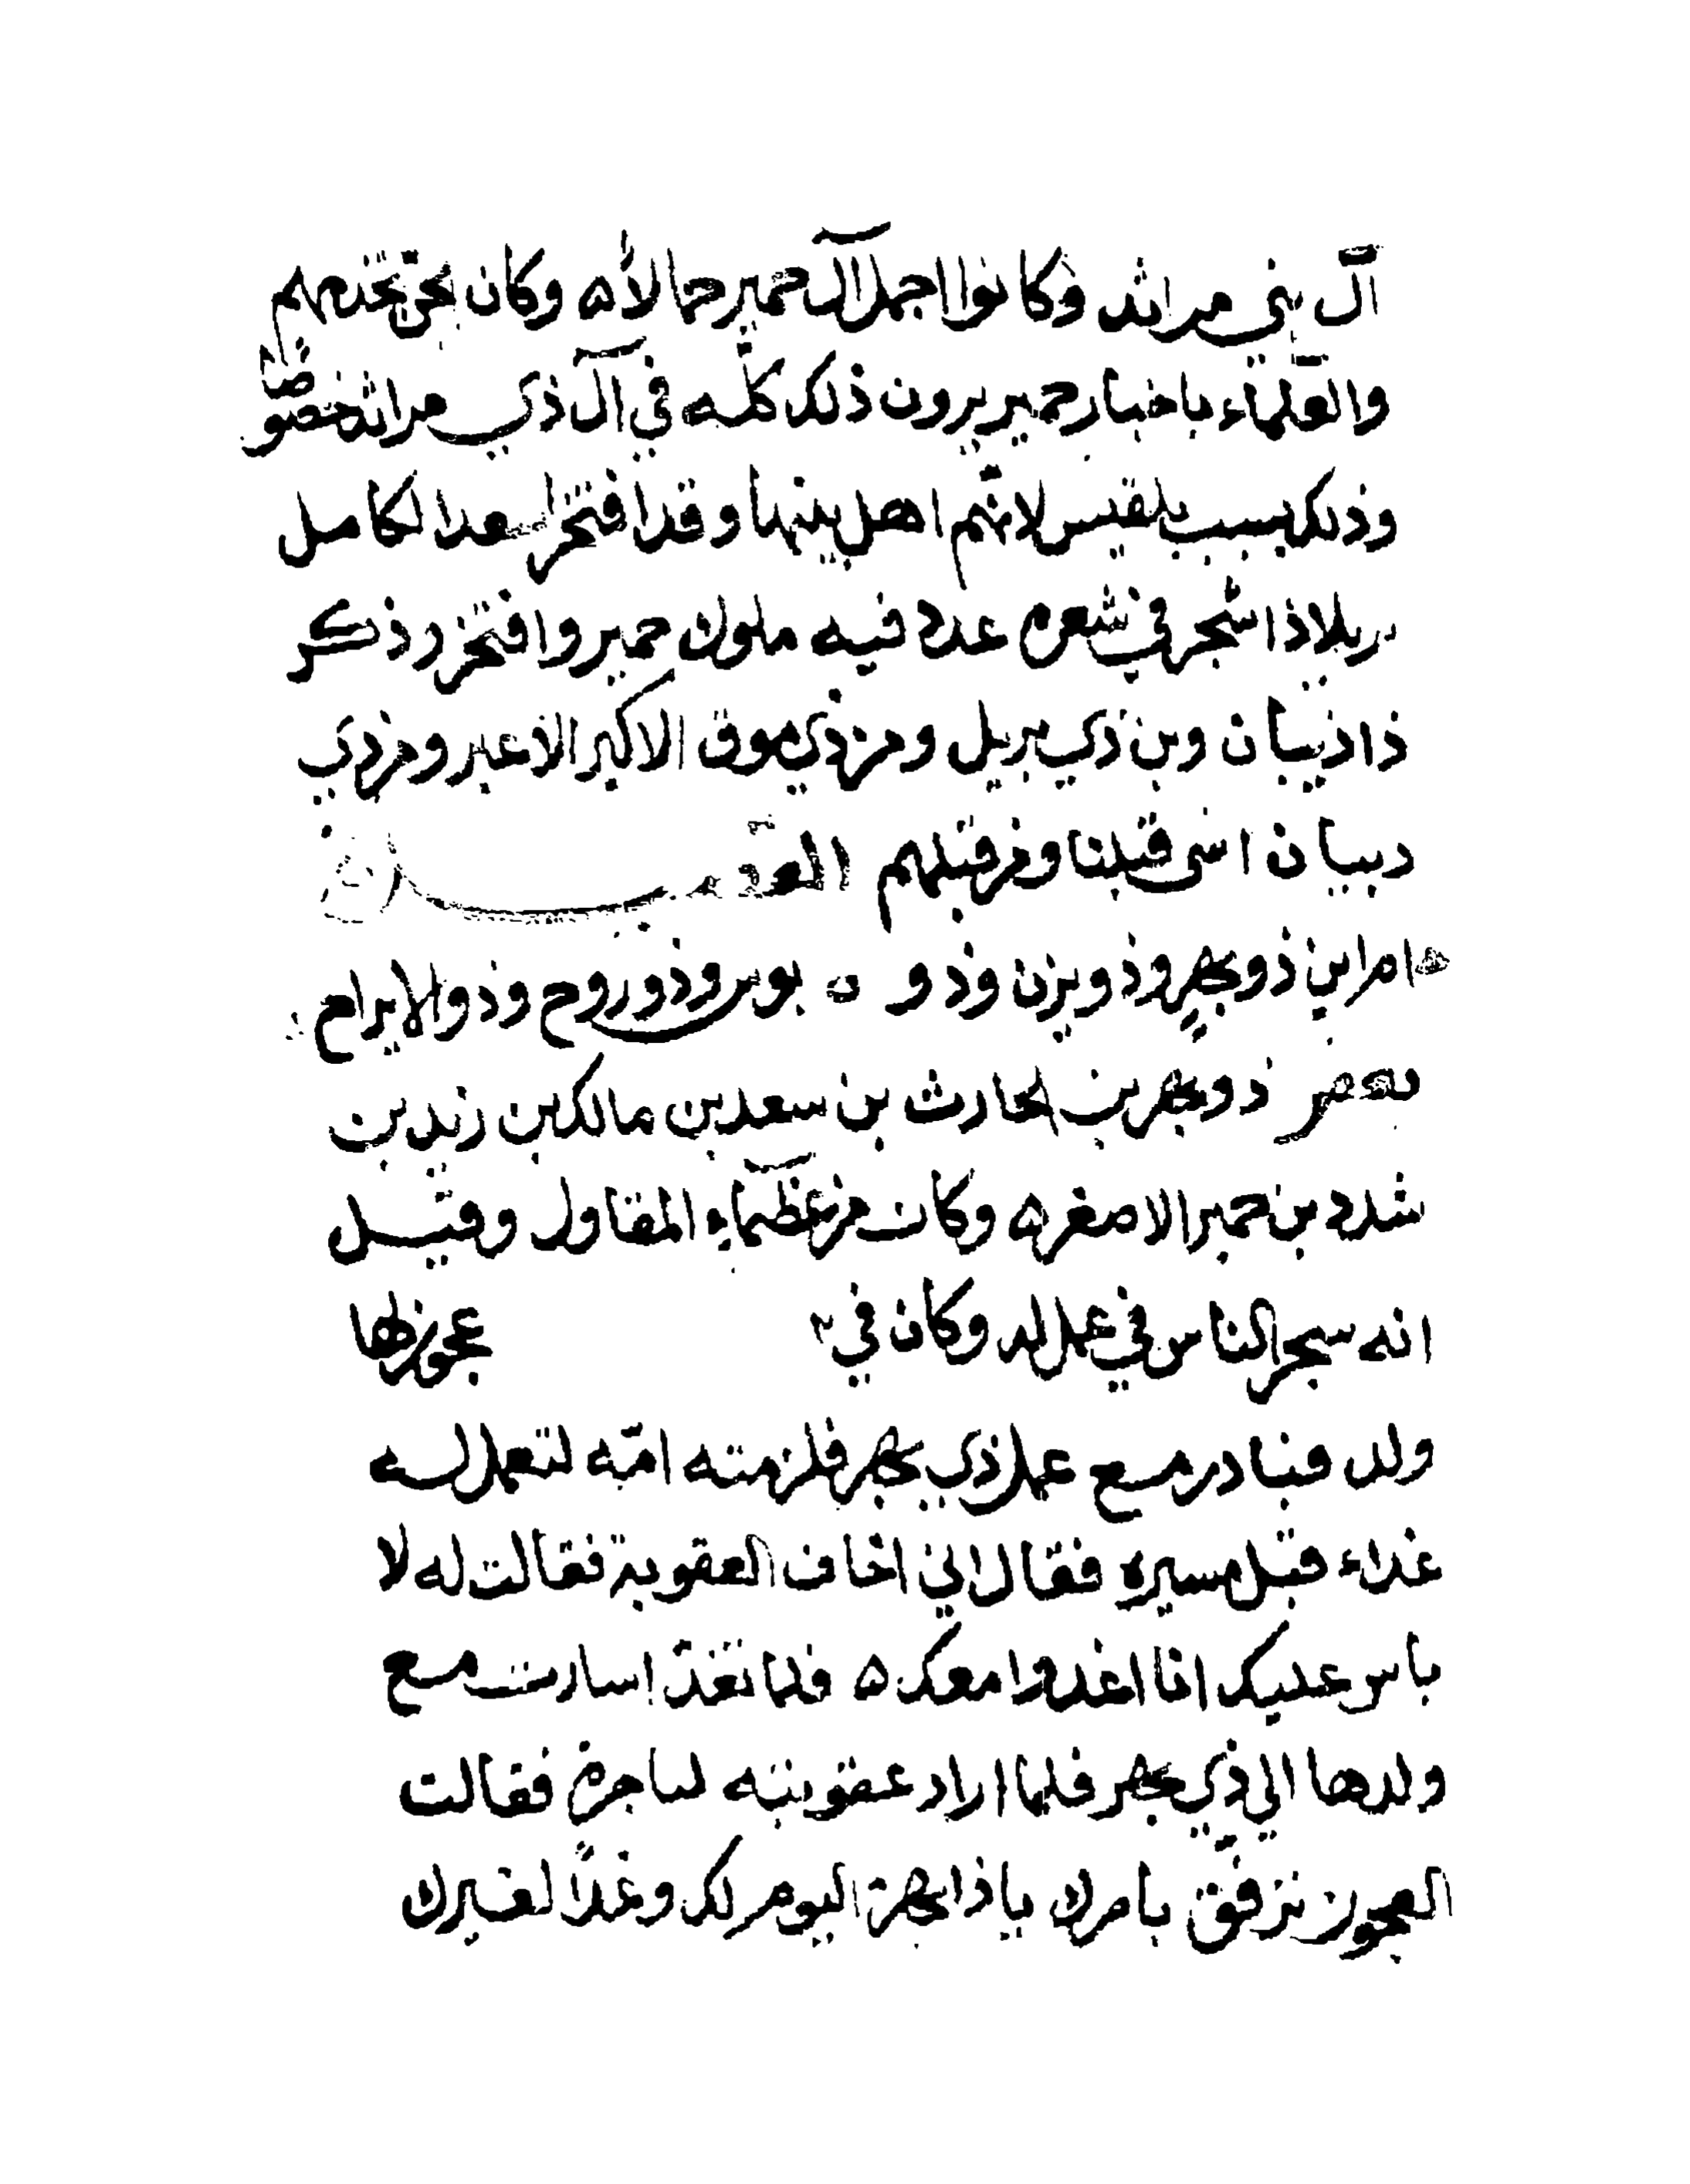 آل بني مراثد وكانوا اجمل آل حمير جمالاً ه وكان تخدمهم
والعلماء باخبار حمير يرون ذلك كله في آل ذي مراثد خصوصًا
وذلك بسبب بلقيس لانهم اهل بيتها وقد افتخر اسعد الكامل
بريلاذا سحر في شعره عدد فيه ملوك حمير وافتخر وذكر
ذا ذبيان وبن ذي بريل ومن ذي الاكبر الاعبر ومن ذي
دبيان قبلنا ومن قبلهم
امراين ذو بهر وذو يزن وذو ه بوس وذو روح وذو الايرام
ذو بهر بن الحارث بن سعد بن مالك بن زيد بن
شدد بن حمير الاصغر ه وكان من عظماء المقاول وقيل
انه سحر الناس في عمل له وكان في عجوز لها
ولد فبادر مع عمل ذي بهر فلزمته امّه لتعمل له
غداء قبل مسيره فقال اني اخاف العقوبة فقالت له لا
باس عليك انا اغدوا معك ه فلما تغدّا سارت مع
ولدها الي ذي بهر فلما اراد عقوبته لتاجره فقالت
العجوز ترفّق بامرك ياذا بهر اليوم لك وغدًا لغيرك